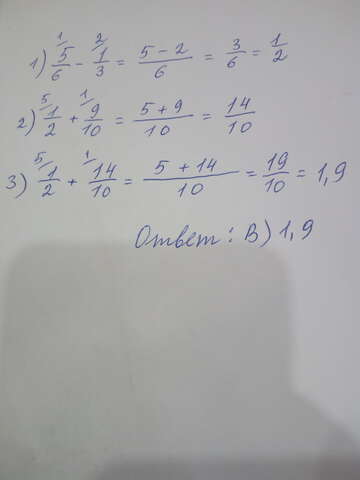 1) ¹⁄5/6 - ²⁄1/3 = (5 - 2)/6 = 3/6 = 1/2
2) ⁵⁄1/2 + ¹⁄9/10 = (5 + 9)/10 = 14/10
3) ⁵⁄1/2 + ¹⁄14/10 = (5 + 14)/10 = 19/10 = 1,9
Ответ: В) 1,9